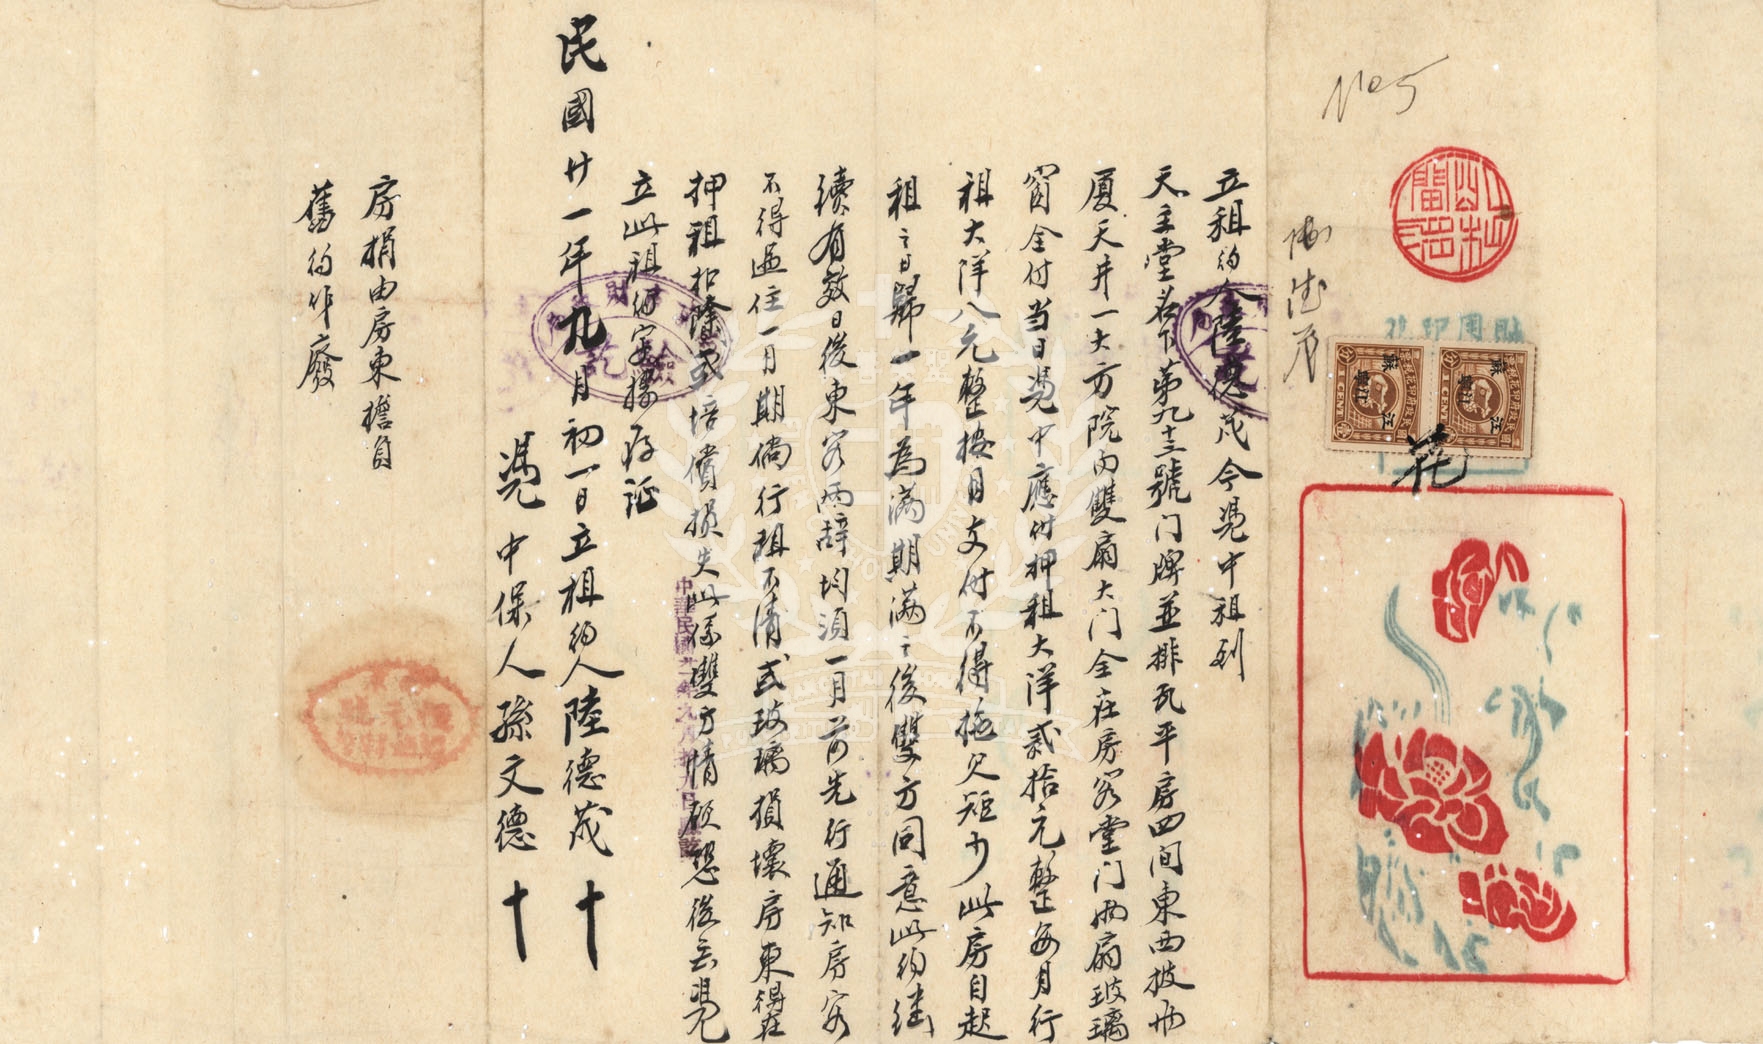 No 5
陸德茂
江蘇 江寧
江蘇 江寧
花
立租約人陸德茂今憑中租到
天主堂名下第九十三號门牌並排瓦平房四间東西披两
厦天井一大方院内雙扇大门全在房客堂门两扇玻璃
窗全付当日憑中應付押租大洋貳拾元整每月行
租大洋八元整按月交付不得拖欠短少此房自起
租之日歸一年為满期满之後雙方同意此约继
續有效日後東客两辞均須一月前先行通知房客
不得過住一月期倘行租不清或玻璃損壞房東得在
押租扣除或培償損失此係雙方情願恐後无憑
立此租约字據存证
民國廿一年九月初一日立租约人陸德茂 十
憑中保人孫文德 十
房捐由房東擔負
舊约作廢